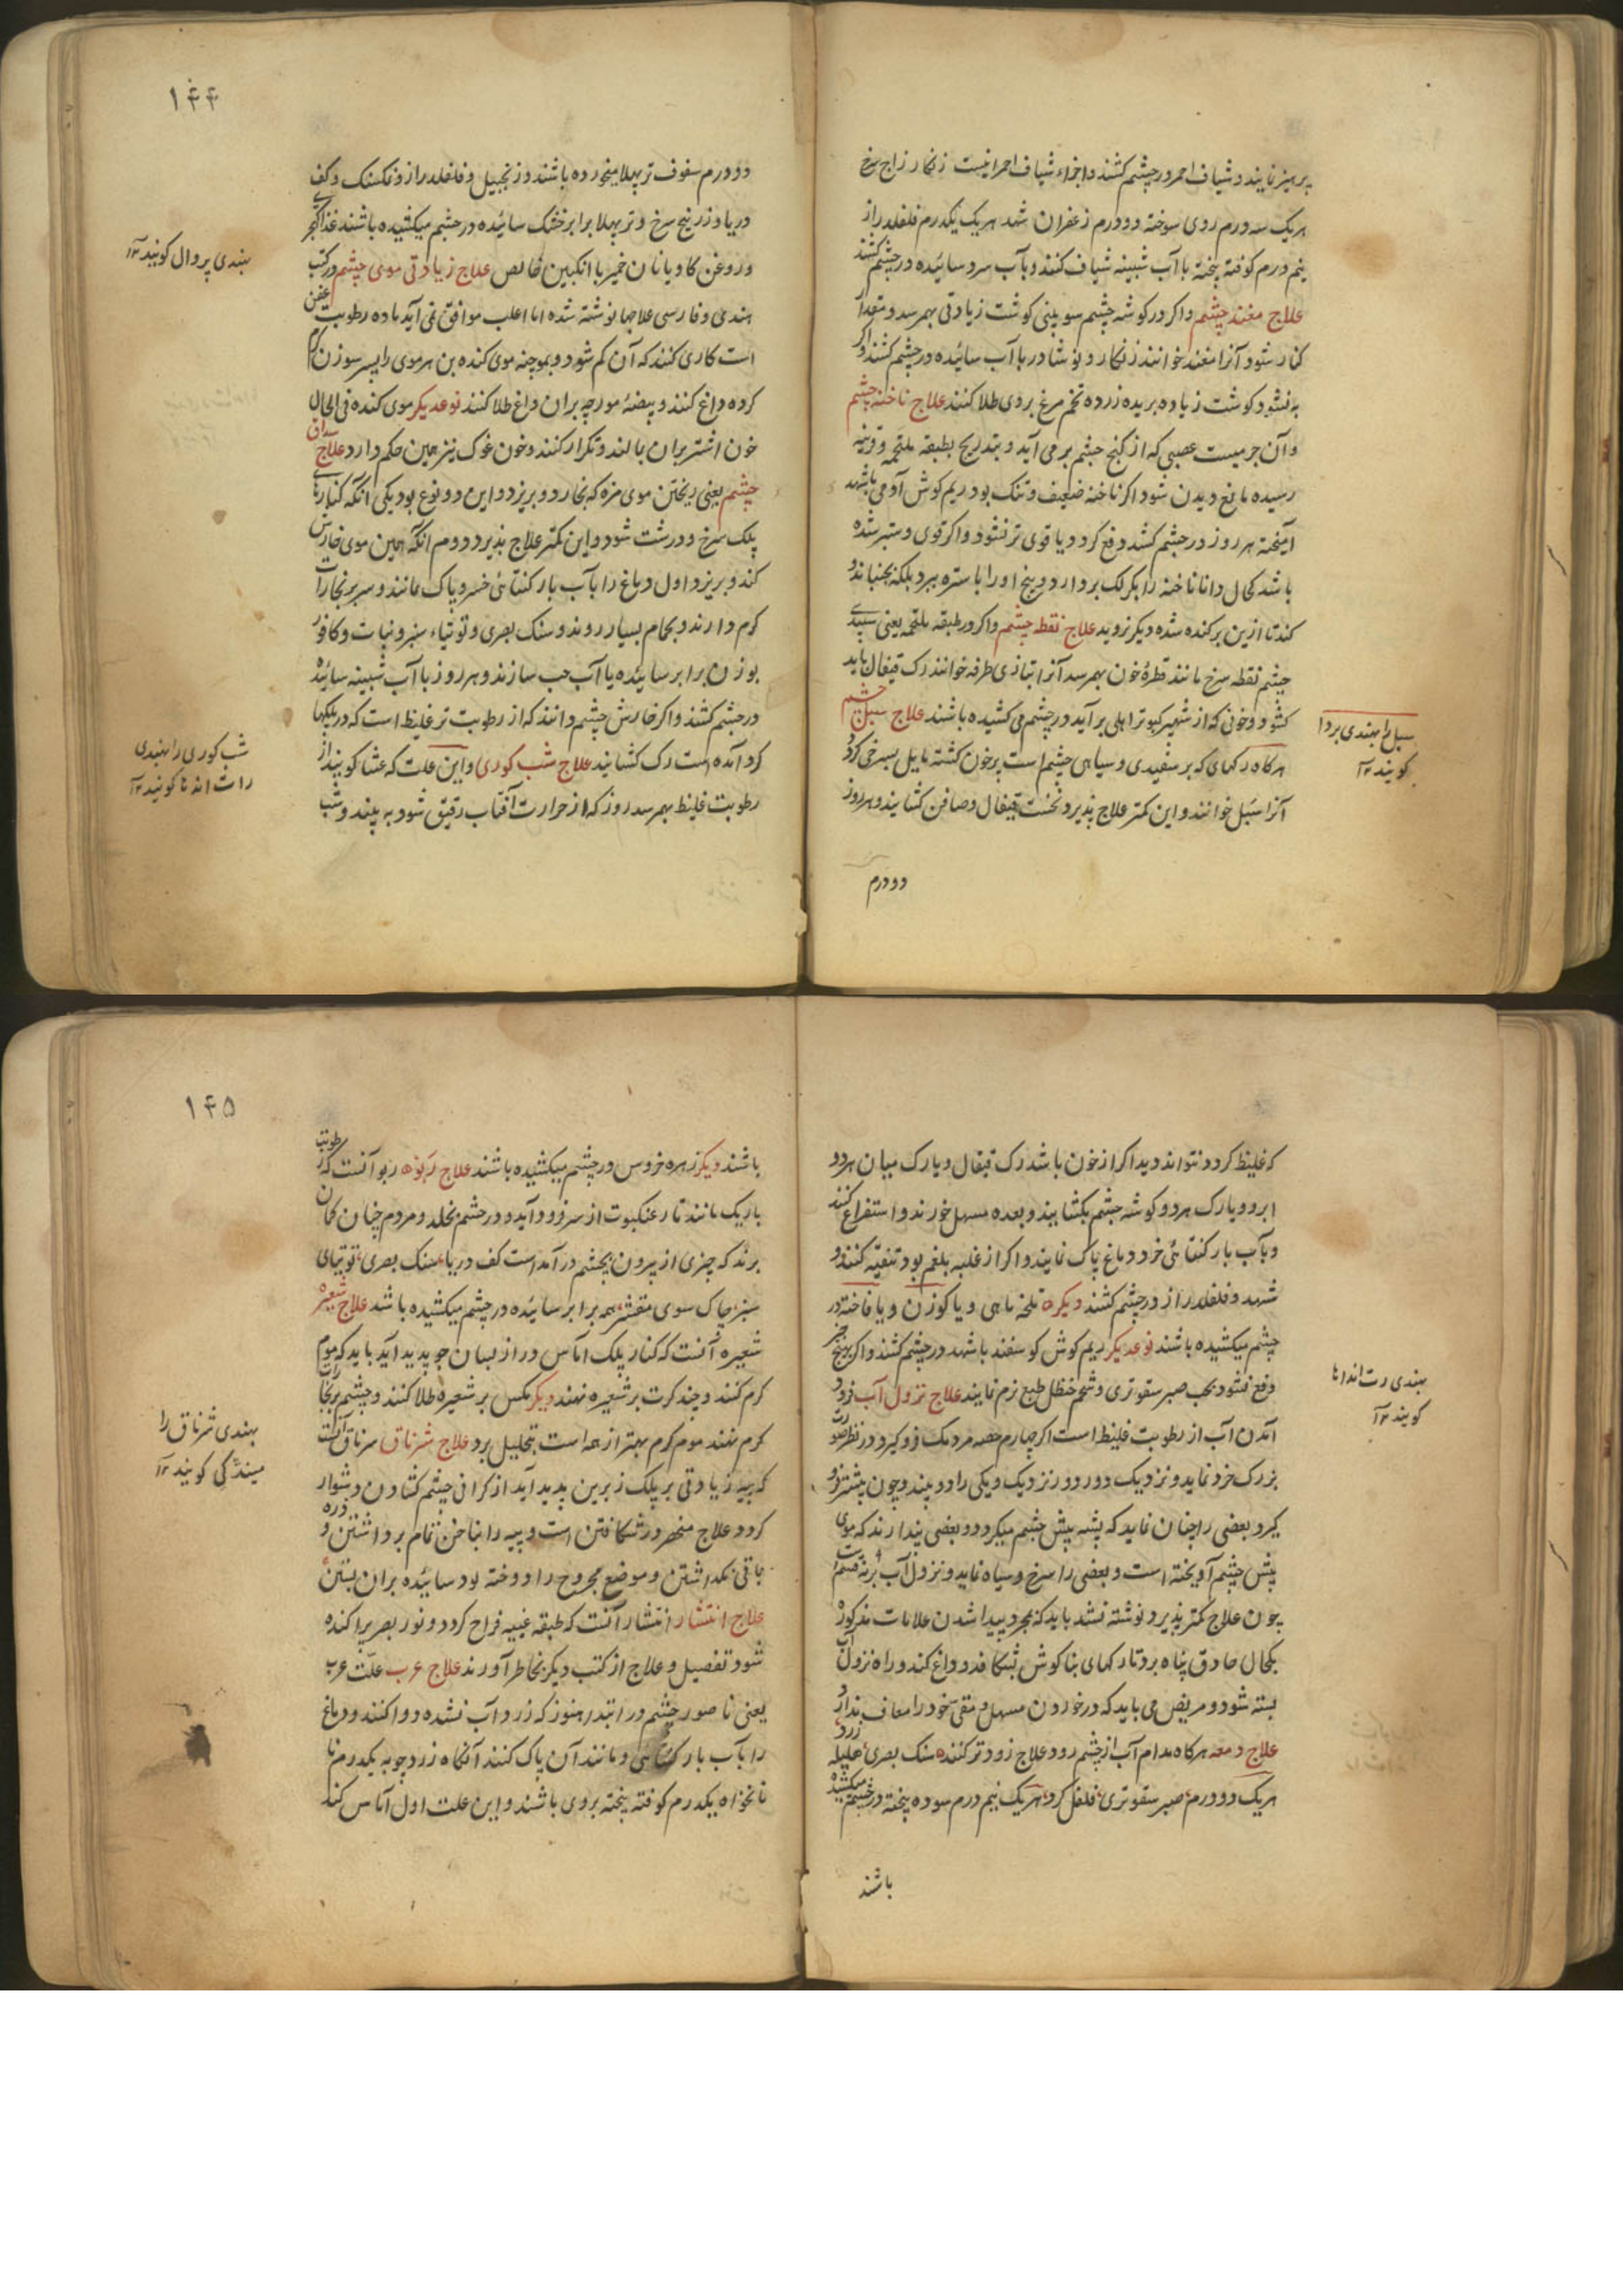 پرهیز نمایند و شیاف احمر در چشم کشند و اجزاء شیاف احمر اینست زنکار زاج سرخ
هر یک سه درم روی سوخته دو درم زعفران شد هر یک یکدرم فلفلدراز
نیم درم کوفته پخته با آب شبینه شیاف کنند و بآب سرد سائیده در چشم کشند
علاج مغند چشم و اکر در کوشه چشم سوبینی کوشت زیادتی بهمرسد و مقدار
کنار شود آنرا مغند خوانند زنکار و نوشادر با آب سائیده در چشم کشند و اکر
به نشود کوشت زیاده بریده زرده تخم مرغ بروی طلا کنند علاج ناخنه چشم
و آن جرمیست عصبی که از کنج چشم بر می آید و بتدریج بطبقه ملتحمه و قرنیه
رسیده مانع دیدن شود اکر ناخنه ضعیف و تنک بود ریم کوش آدمی با شهد
آمیخته هر روز در چشم کشد دفع کردد یا قوی تر نشود و اکر قوی و ستبر شده
باشد کحال دانا ناخنه را بکرلک بردارد و بیخ او را باستره ببرد بلکه بجنباند و
کند تا از بن برکنده شده دیکر نروید علاج نقطه چشم و اکر در طبقه ملتحمه یعنی سپیدی
چشم نقطه سرخ مانند قطرهٔ خون بهمرسد آنرا بتازی طرفه خوانند رک قیفال باید
کشود و خونی که از شهپر کبوتر اهلی بر آید در چشم می کشیده باشند علاج سبل چشم
هرکاه رکهای که بر سفیدی و سیاهی چشم است پر خون کشته مایل بسرخی کردد
آنرا سبل خوانند و این کمتر علاج پذیرد نخست قیفال و صافن کشایند و هر روز
دو درم
سبل را بهندی پردا
کویند ۱۲
۱۴۴
دو درم سفوف ترپهلا میخورده باشند و زنجبیل و فلفلدراز و نمکسنک و کف
دریا و زرنیخ سرخ و ترپهلا برابر خشک سائیده در چشم میکشیده باشند غذا کهچری
و روغن کاو یا نان خمیر با انکبین خالص علاج زیادتی موی چشم در کتب
هندی و فارسی علاجها نوشته شده اما اغلب موافق نمی آید ماده رطوبت عفن
است کاری کنند که آن کم شود و بموچنه موی کنده بن هر موی را بسر سوزن کرم
کرده داغ کنند و بیضهٔ مورچه بران داغ طلا کنند نوعدیکر موی کنده فی الحال
خون اشتر بران بمالند و تکرار کنند و خون غوک نیز همین حکم دارد علاج سلاق
چشم یعنی ریختن موی مژه که بخارد و بریزد و این دو نوع بود یکی انکه کنارهای
پلک سرخ و درشت شود و این کمتر علاج پذیرد دوم انکه همین موی خارش
کند و بریزد اول دماغ را بآب بار کنتائی خرد پاک نمانند و سر بر بخار آب
کرم دارند و بحمام بسیار روند و سنک بصری و توتیاء سبز و نبات و کافور
بوزن برابر سائیده با آب حب سازند و هر روز با آب شبینه سائیده
در چشم کشند و اکر خارش چشم دانند که از رطوبت تر غلیظ است که در پلکها
کرد آمده است رک کشانید علاج شب کوری و این علت که عشا کویند از
رطوبت غلیظ بهمرسد روز که از حرارت آفتاب رقیق شود به بیند و شب
بهندی پروال کویند ۱۲
شب کوری را بهندی
رات اندها کویند ۱۲
که غلیظ کردد نتواند دید اکر از خون باشد رک قیفال و یا رک میان هر دو
ابرو و یا رک هر دو کوشه چشم بکشایند و بعده مسهل خورند و استفراغ کنند
و بآب بار کنتائی خرد دماغ پاک نمایند و اکر از غلبه بلغم بود تنقیه کنند و
شهد و فلفلدراز در چشم کشند دیکر تلخه ماهی و یا کوزن و یا فاخته در
چشم میکشیده باشند نوعدیکر ریم کوش کوسفند با شهد در چشم کشند و اکر بهیچ چیز
دفع نشود بحب صبر سقوتری و شحم حنظل طبع نرم نمایند علاج نزول آب فرود
آمدن آب از رطوبت غلیظ است اکر چهارم حصه مردمک فرو کیرد در نظر صورت
بزرک خرد نماید و نزدیک دور و دور نزدیک و یکی را دو بیند و چون بیشتر فرو
کیرد بعضی را چنان نماید که پشه پیش چشم میکردد و بعضی پندارند که موی
پیش چشم آویخته است و بعضی را سرخ و سیاه نماید و نزول آب نه قسم است
چون علاج کمتر پذیرد نوشته نشد باید که بمجرد پیدا شدن علامات مذکوره
بکحال حاذق پناه برد تا رکهای بناکوش بشکافد و داغ کند و راه نزول آب
بسته شود و مریض می باید که در خوردن مسهل و مقی خود را معاف ندارد
علاج دمعه هرکاه مدام آب از چشم رود علاج زودتر کنند سنک بصری هلیله زرد
هر یک دو درم صبر سقوتری فلفل کرد هر یک نیم درم سوده پخته در چشم میکشیده
باشند
بهندی رت اندها
کویند ۱۲
۱۴۵
باشند دیکر زهره خروس در چشم میکشیده باشند علاج ربوه ربو آنست که رطوبت
باریک مانند تار عنکبوت از سر فرود آید و در چشم بخلد و مردم چنان کمان
برند که چیزی از بیرون بچشم در آمد است کف دریا سنک بصری توتیای
سبز چاکسوی مقشر همه برابر سائیده در چشم میکشیده باشد علاج شعیره
شعیره آنست که کنار پلک آماس دراز بسان جو پدید آید باید که موم
کرم کنند و چند کرت بر شعیره نهند دیکر مکس بر شعیره طلا کنند و چشم بر بخار آب
کرم نهند موم کرم بهتر از همه است بتحلیل برد علاج شرناق سرناق آنست
که پیه زیادتی بر پلک زبرین پدید آید از کرانی چشم کشادن دشوار
کردد علاج منحصر در شکافتن است و پیه را بناخن تمام برداشتن و ذره
باقی نکذاشتن و موضع مجروح را دوخته بود سائیده بران بستن
علاج انتشار انتشار آنست که طبقه عنبیه فراخ کردد و نور بصر پراکنده
شود تفصیل و علاج از کتب دیکر بخاطر آورند علاج عرب علت عرب
یعنی ناصور چشم در ابتدا هنوز که زرد آب نشده دوا کنند و دماغ
را بآب بار کتائی و مانند آن پاک کنند آنکاه زرد چوبه یکدرم تا
نانخواه یکدرم کوفته پخته بروی باشند و این علت اول آماس کند
بهندی شرناق را
میندکی کویند ۱۲